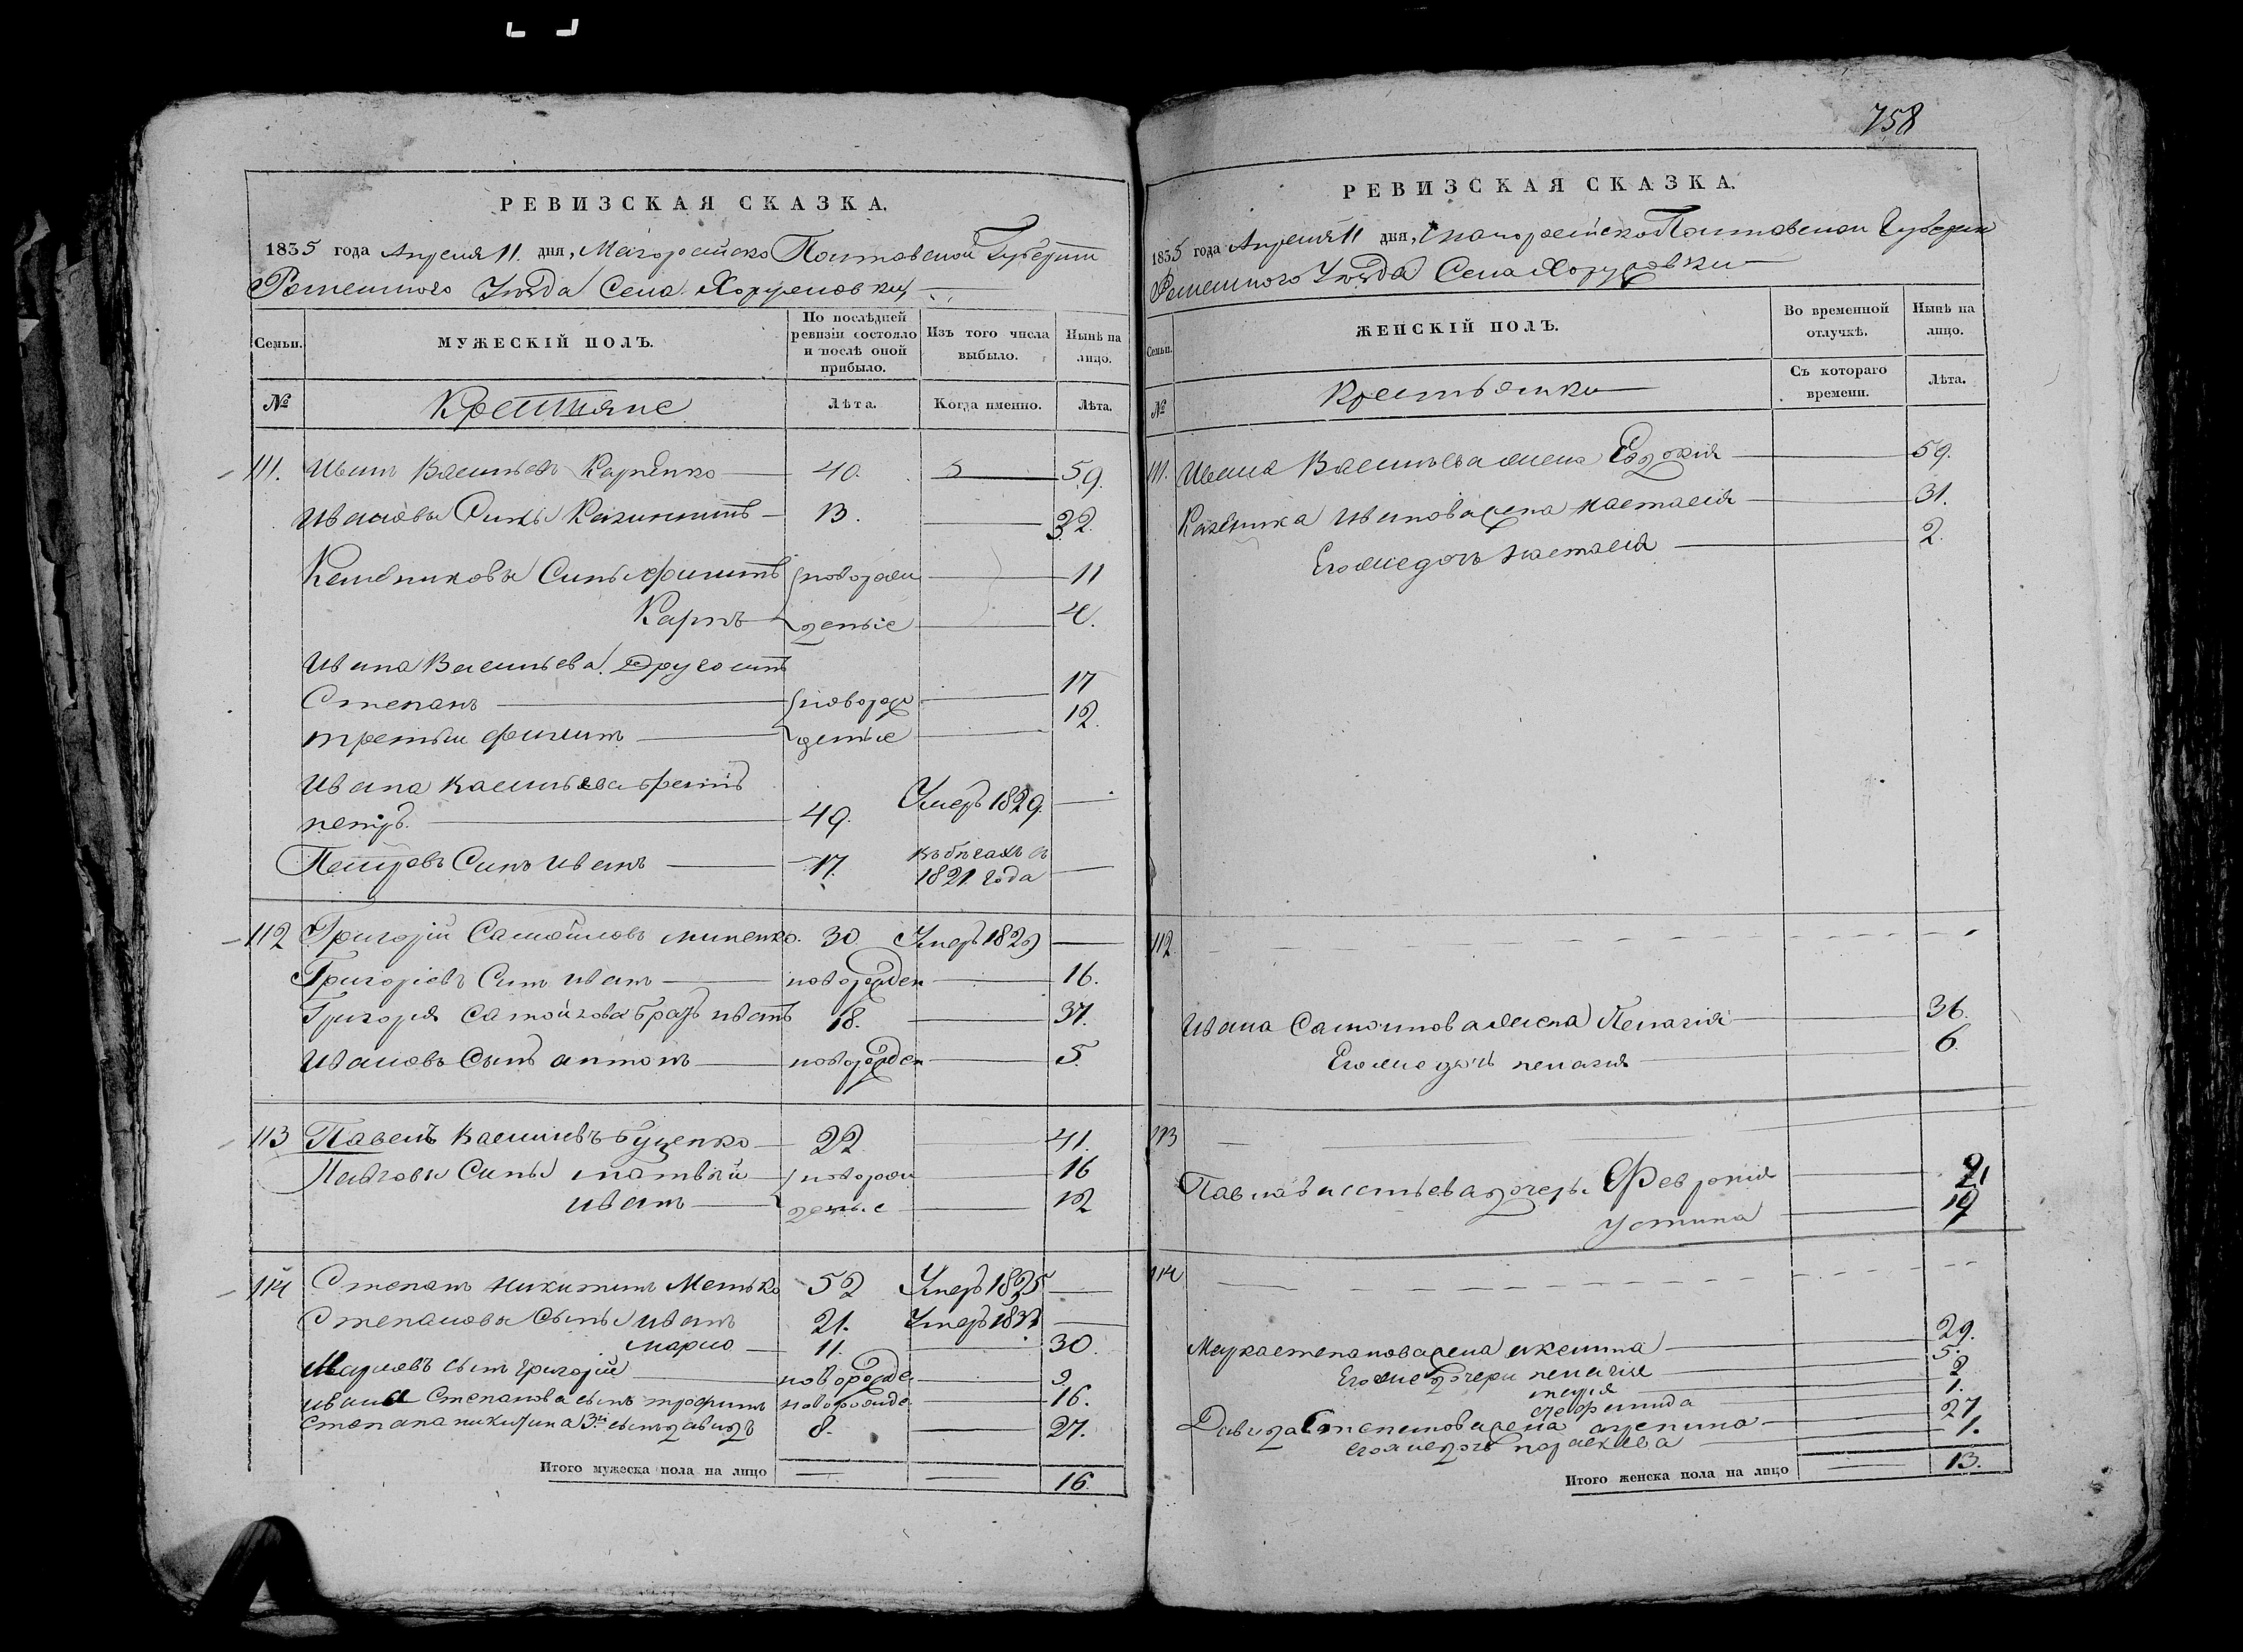 758
РЕВИЗСКАЯ СКАЗКА.
1835 года Апреля 11. дня, Малоросійско Полтавской Губерніи
Роменского Уѣзда Села Хоружовки
Семьи.
МУЖЕСКІЙ ПОЛЪ.
По послѣдней ревизіи состояло и послѣ оной прибыло.
Изъ того числа выбыло.
Нынѣ на лицо.
№
Крестьяне
Лѣта.
Когда именно.
Лѣта.
111. Иванъ Васильевъ Карпенко 40. 59.
Ивановы Сыны 13. 32.
Сынъ Филипъ новорож 11
Карпъ денные 4.
Ивана Васильева другой сынъ
Степанъ новорож 17
третьи Филипъ денные 12.
Ивана Васильева братъ
петръ. 49. Умеръ 1829.
Петровъ Синъ Иванъ 17. въ бѣгахъ съ 1821 года
112 Григорій Самойловъ миненко. 30. Умеръ 1829
Григоріевъ Синъ Иванъ новорожден 16.
Григорія Самойлова братъ иванъ 18. 37.
Ивановъ Сынъ антонъ новорожден 5.
113 Павелъ Васильевъ Буценко 22 41.
Павловы Сины матвѣй новорож 16
иванъ денные 12
114 Степанъ Никитинъ 52 Умеръ 1825
Степановы Сыны иванъ 21. Умеръ
марко 11. 30.
Марковъ сынъ григорій новорожде 9.
ивана Степанова сынъ трофимъ новорожде 16.
Степана никитина 3й сынъ давидъ 8. 27.
Итого мужеска пола на лицо 16.
РЕВИЗСКАЯ СКАЗКА.
1835 года Апреля 11 дня, Малоросійско Полтавской Губерніи
Роменского Уѣзда Села Хоружовки
Семьи.
ЖЕНСКІЙ ПОЛЪ.
Во временной отлучкѣ.
Нынѣ на лицо.
№
Крестьянки
Съ котораго времени.
Лѣта.
111. Ивана Васильева жена Евдокія 59.
Иванова жена настасія 31.
Его же дочь настасія 2.
112.
Ивана Самойлова жена Пелагія 36.
Его же дочь пелагія 6.
113
Павла васильева дочеръ Феврония 21
устина
114
Марка степанова жена 29.
Его же дочери пелагія 5.
2
1.
Давида Степанова жена 27
его же дочь параскева 1.
Итого женска пола на лицо 13.